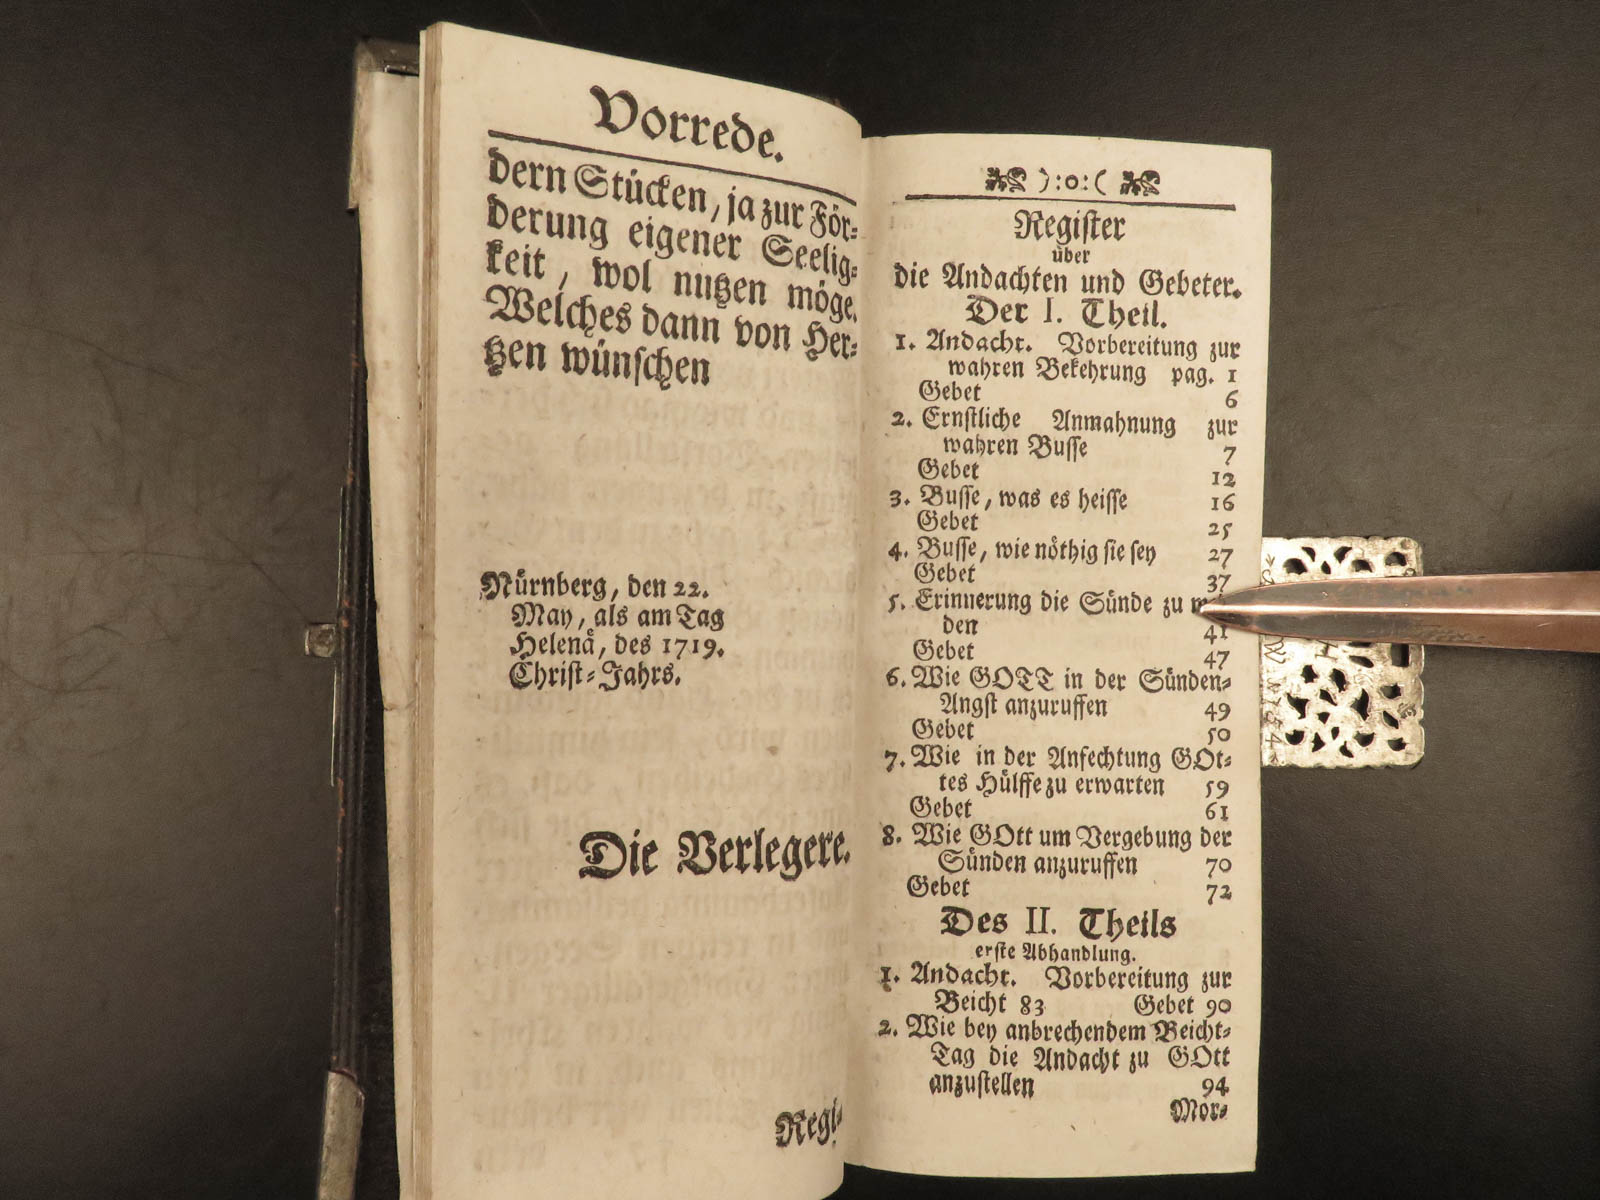 Vorrede.
dern Stücken, ja zur För-
derung eigener Seelig-
keit, wol nutzen möge.
Welches dann von Her-
tzen wünschen
Nürnberg, den 22.
May, als am Tag
Helenä, des 1719.
Christ-Jahrs.
Die Verlegere.
Regi-
):o:(
Register
über
die Andachten und Gebeter.
Der I. Theil.
1. Andacht. Vorbereitung zur
wahren Bekehrung pag. 1
Gebet 6
2. Ernstliche Anmahnung zur
wahren Busse 7
Gebet 12
3. Busse, was es heisse 16
Gebet 25
4. Busse, wie nöthig sie sey 27
Gebet 37
5. Erinnerung die Sünde zu
den 41
Gebet 47
6. Wie GOTT in der Sünden-
Angst anzuruffen 49
Gebet 50
7. Wie in der Anfechtung GOt-
tes Hülffe zu erwarten 59
Gebet 61
8. Wie GOtt um Vergebung der
Sünden anzuruffen 70
Gebet 72
Des II. Theils
erste Abhandlung.
1. Andacht. Vorbereitung zur
Beicht 83 Gebet 90
2. Wie bey anbrechendem Beicht-
Tag die Andacht zu GOtt
anzustellen 94
Mor-